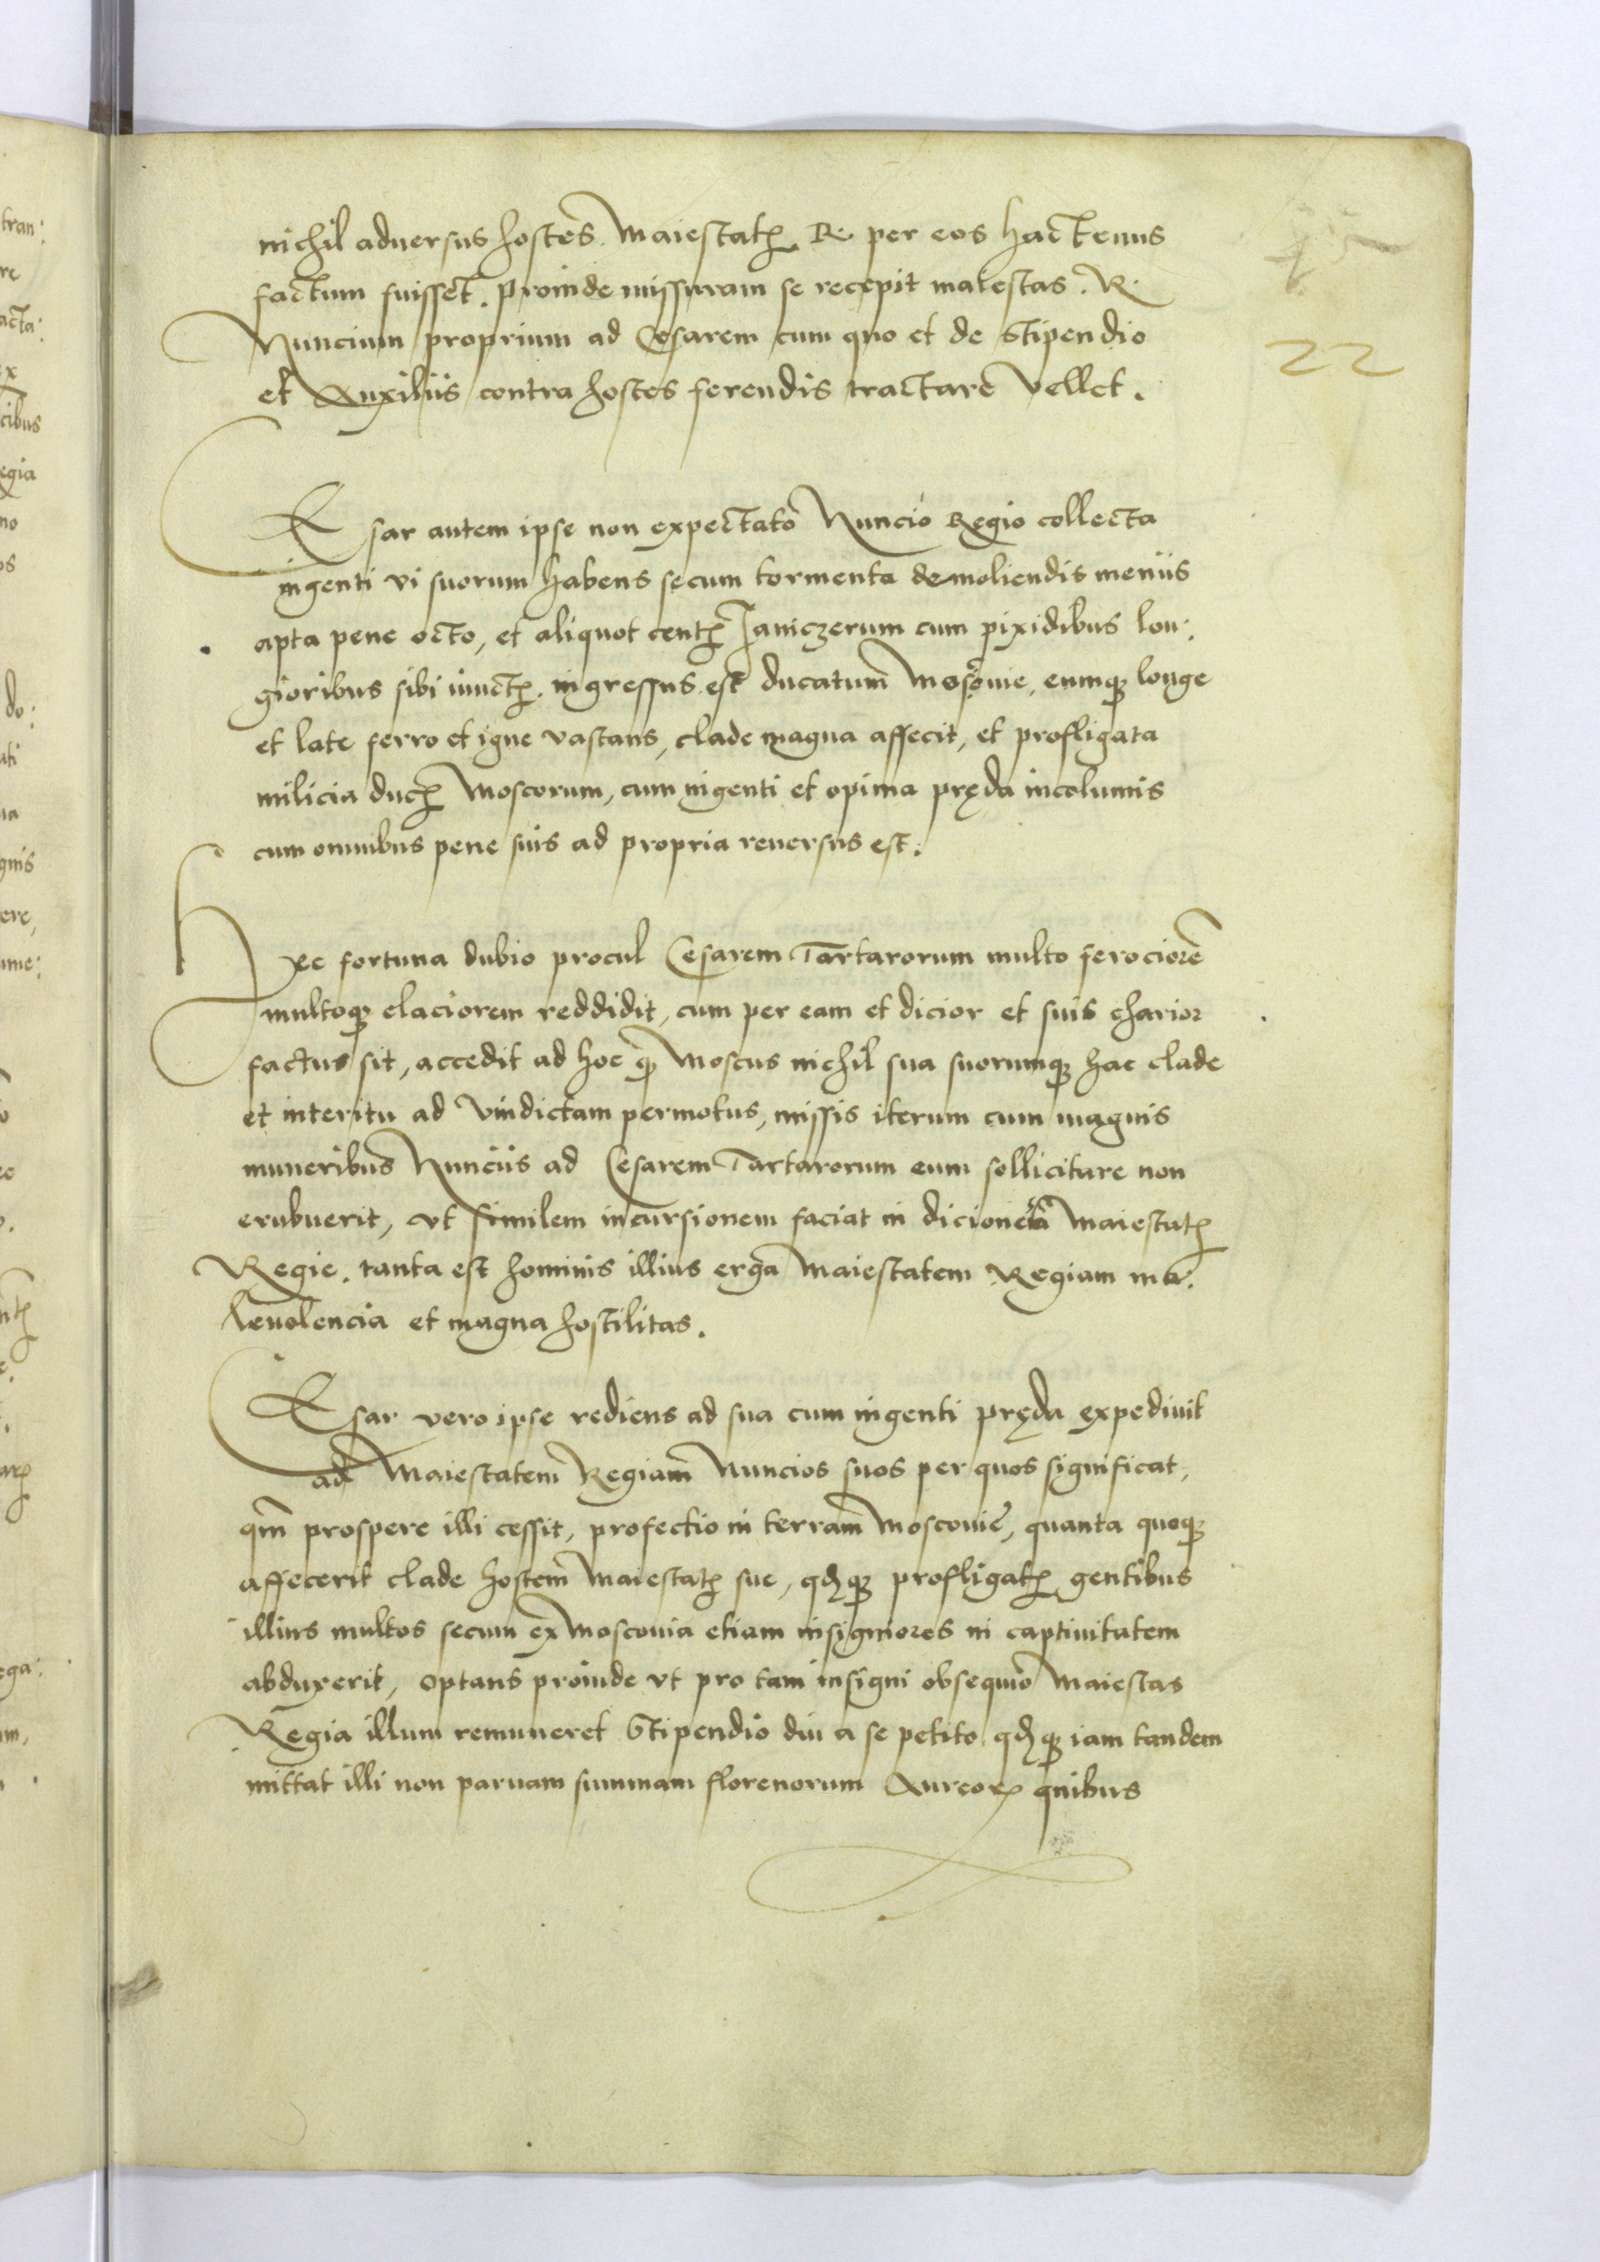 nichil aduersus hostes Maiestatꝭ R. per eos hactenus
factum fuisset. Proinde missuram se recepit maiestas. R.
Nuncium proprium ad Cesarem cum quo et de stipendio
et Auxiliis contra hostes ferendis tractare vellet.
22
CEsar autem ipse non expectato Nuncio Regio collecta
ingenti vi suorum habens secum tormenta demoliendis meniis
apta pene octo, et aliquot centꝭ Janiczerum cum pixidibus lon:
gioribus sibi iunctꝭ. ingressus est ducatum Moscouie, eumqꝫ longe
et late ferro et igne vastans, clade magna affecit, et profligata
milicia ducꝭ Moscorum, cum ingenti et opima pręda incolumis
cum omnibus pene suis ad propria reuersus est.
Hec fortuna dubio procul Cesarem Tartarorum multo ferociorē
multoqꝫ elaciorem reddidit, cum per eam et dicior et suis charior
factus sit, accedit ad hoc ꝙ Moscus nichil sua suorumqꝫ hac clade
et interitu ad vindictam permotus, missis iterum cum magnis
muneribus Nunciis ad Cesarem Tartarorum eum sollicitare non
erubuerit, vt similem incursionem faciat in dicionē Maiestatꝭ
Regie. tanta est hominis illius erga Maiestatem Regiam ma:
leuolencia et magna hostilitas.
CEsar vero ipse rediens ad sua cum ingenti pręda expediuit
ad Maiestatem Regiam Nuncios suos per quos significat,
qm̄ prospere illi cessit, profectio in terram Moscouie, quanta quoqꝫ
affecerit clade hostem Maiestatꝭ sue, qđqꝫ profligatꝭ gentibus
illius multos secum ex Moscouia etiam insigniores in captiuitatem
abduxerit, optans proinde vt pro tam insigni obsequio Maiestas
Regia illum remuneret Stipendio diu a se petito qđqꝫ iam tandem
mittat illi non paruam summam florenorum Aureoꝝ quibus